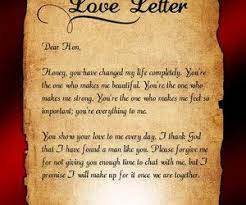 Love Letter
Dear Hon,
Honey, you have changed my life completely. You're the
one who makes me beautiful. You're the one who
makes me strong. You're the one who makes me feel so
important; you're everything to me.
You show your love to me every day. I thank God
that I have found a man like you. Please forgive me
for not giving you enough time to chat with me, but I
promise I will make up for it once we are together.